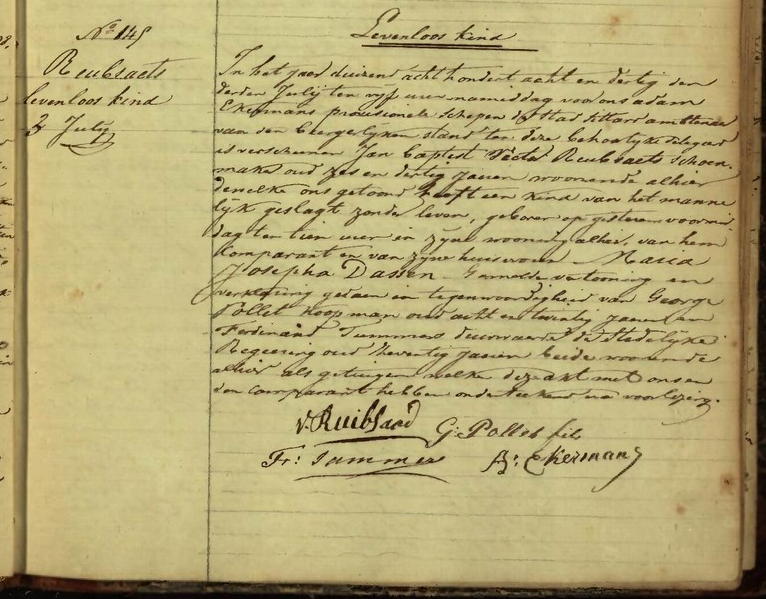 Nº 145
Reubsaets
levenloos kind
3 July
Levenloos kind
In het jaar duizend acht hondert acht en dertig den
derden Julij ten vyf uren namiddag voor ons adam
Ekermans provisionele schepen der Stad Sittard ambtenaar
van den burgerlyken stand ten deze behoorlyk delegeerd
is verschenen Jan Baptist Victor Reubsaets schoen-
maker oud zes en dertig jaren woonende alhier
denwelke ons getoond heeft een kind van het manne
lyk geslagt zonder leven, geboren op gisteren voormid
dag ten tien uren in zyne wooning alhier, van hem
Comparant en van zyne huisvrouw Maria
Josepha Dassen Gemelde vertooning en
verklaring gedaen in tegenwoordigheid van George
Pollet koopman oud acht en twintig jaren en
Ferdinand Tummers deurwaarder der Stedelyke
Regeering oud zeventig jaren beide woonende
alhier als getuigen welke deze akt met ons en
den comparant hebben onderteekend na voorlezing.
V. Ruibsaed G: Pollet fils
Fr: Tummers A: Ekermans